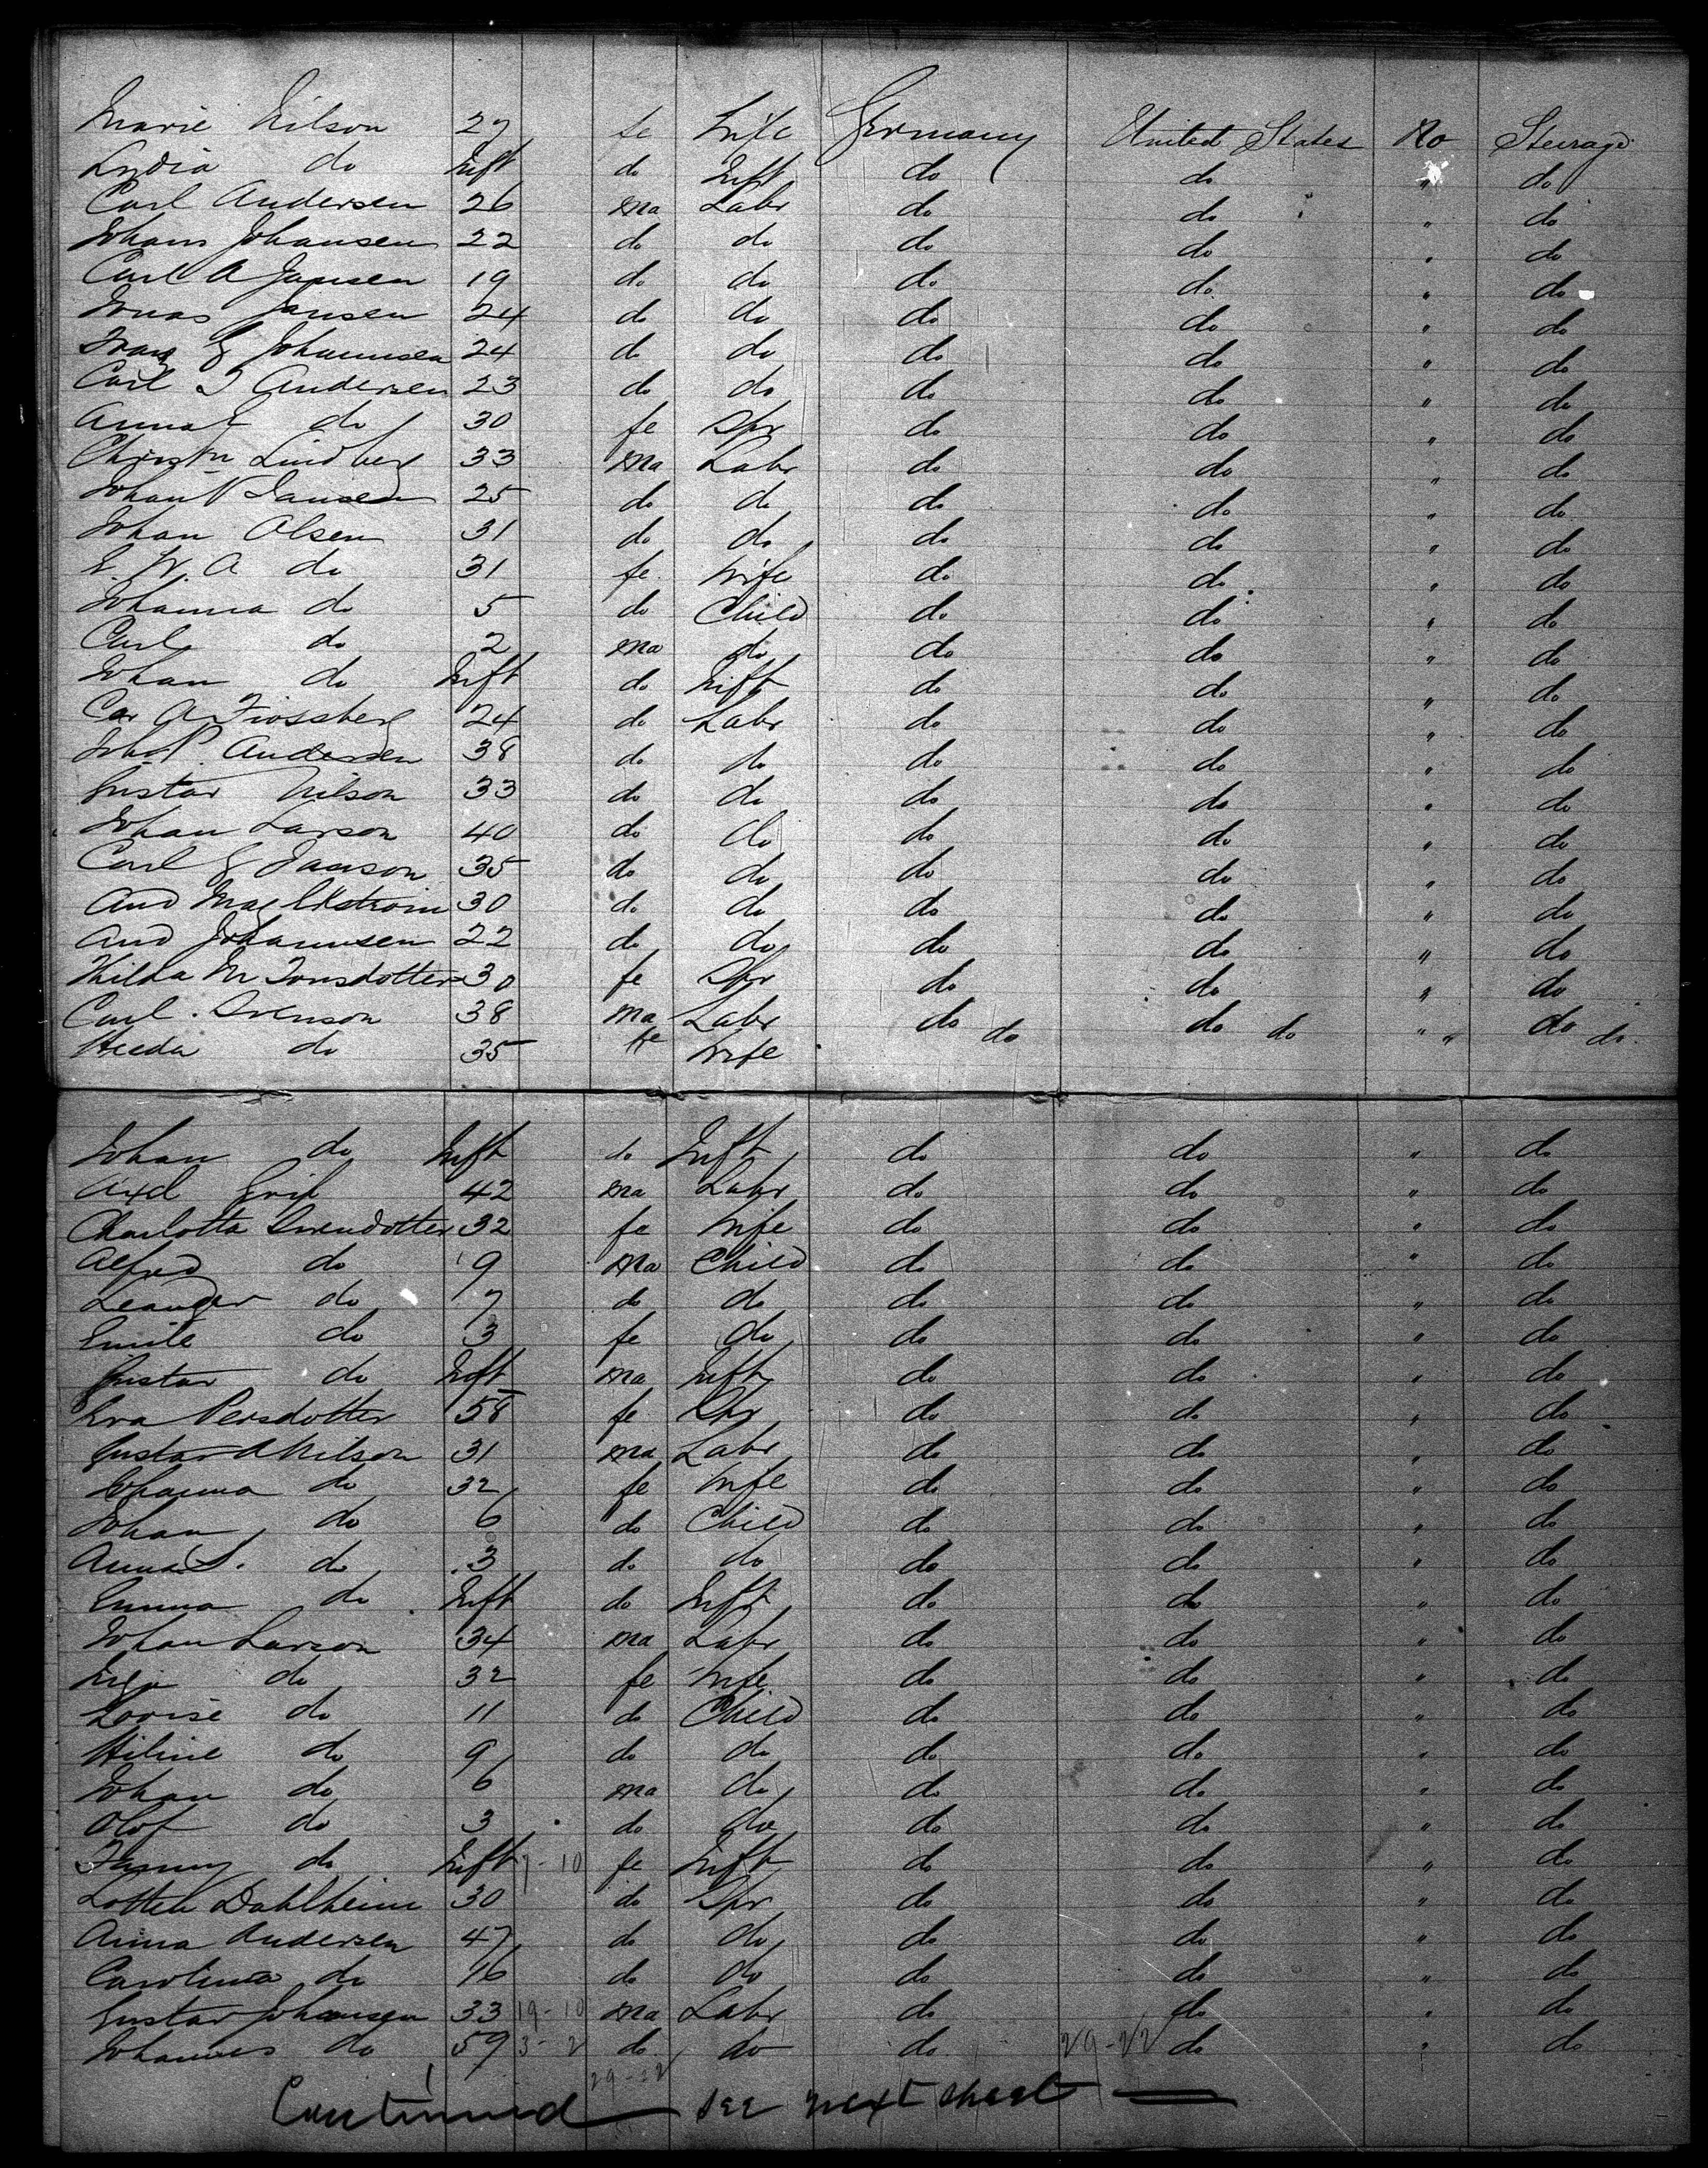 Marie Nilson 27 fe Wife Germany United States No Steerage
Lydia do Inft do Inft do do " do
Carl Andersen 26 ma Labr do do " do
Johans Johansen 22 do do do do " do
Carl A Jansen 19 do do do do " do
Jonas Jansen 24 do do do do " do
Johannsen 24 do do do do " do
Carl J Andersen 23 do do do do " do
Anna do 30 fe Spr do do " do
Christn Lindberg 33 ma Labr do do " do
Johan Jansen 25 do do do do " do
Johan Olsen 31 do do do do " do
E. W. A do 31 fe. Wife do do " do
Johanna do 5 do Child do do " do
Carl do 2 ma do do do " do
Johan do Inft do Inft do do " do
Car A Frossberg 24 do Labr do do " do
Joh. P. Andersen 38 do do do do " do
Gustav Nilson 33 do do do do " do
Johan Larson 40 do do do do " do
Carl G Janson 35 do do do do " do
And Mag Ekstrom 30 do do do do " do
And Johannsen 22 do do do do " do
Hilda M Jonsdotter 30 fe Spr do do " do
Carl Svenson 38 ma Labr do do " do
Heeda do 35 fe Wife do do " do
Johan do Inft do Inft do do " do
Axel Grip 42 ma Labr do do " do
Charlotta Svendotter 32 fe Wife do do " do
Alfred do 9 ma Child do do " do
Leander do 7 do do do do " do
Emile do 3 fe do do do " do
Gustav do Inft ma Inft do do " do
Eva Persdotter 58 fe Spr do do " do
Gustav A Nilson 31 ma Labr do do " do
Johanna do 32 fe Wife do do " do
Johan do 6 do Child do do " do
Anna S. do 3 do do do do " do
Emma do Inft do Inft do do " do
Johan Larson 34 ma Labr do do " do
do 32 fe Wife do do " do
Lovise do 11 do Child do do " do
Hiline do 9 do do do do " do
Johan do 6 ma do do do " do
Olof do 3 do do do do " do
Fanny do Inft 7-10 fe Inft do do " do
Lotten Dahlheim 30 do Spr do do " do
Anna Andersen 47 do do do do " do
Carolina do 16 do do do do " do
Gustav Johansen 33 19-10 ma Labr do do " do
Johannes do 59 3-2 do do do 29-22 do " do
29-22
Continued see next sheet